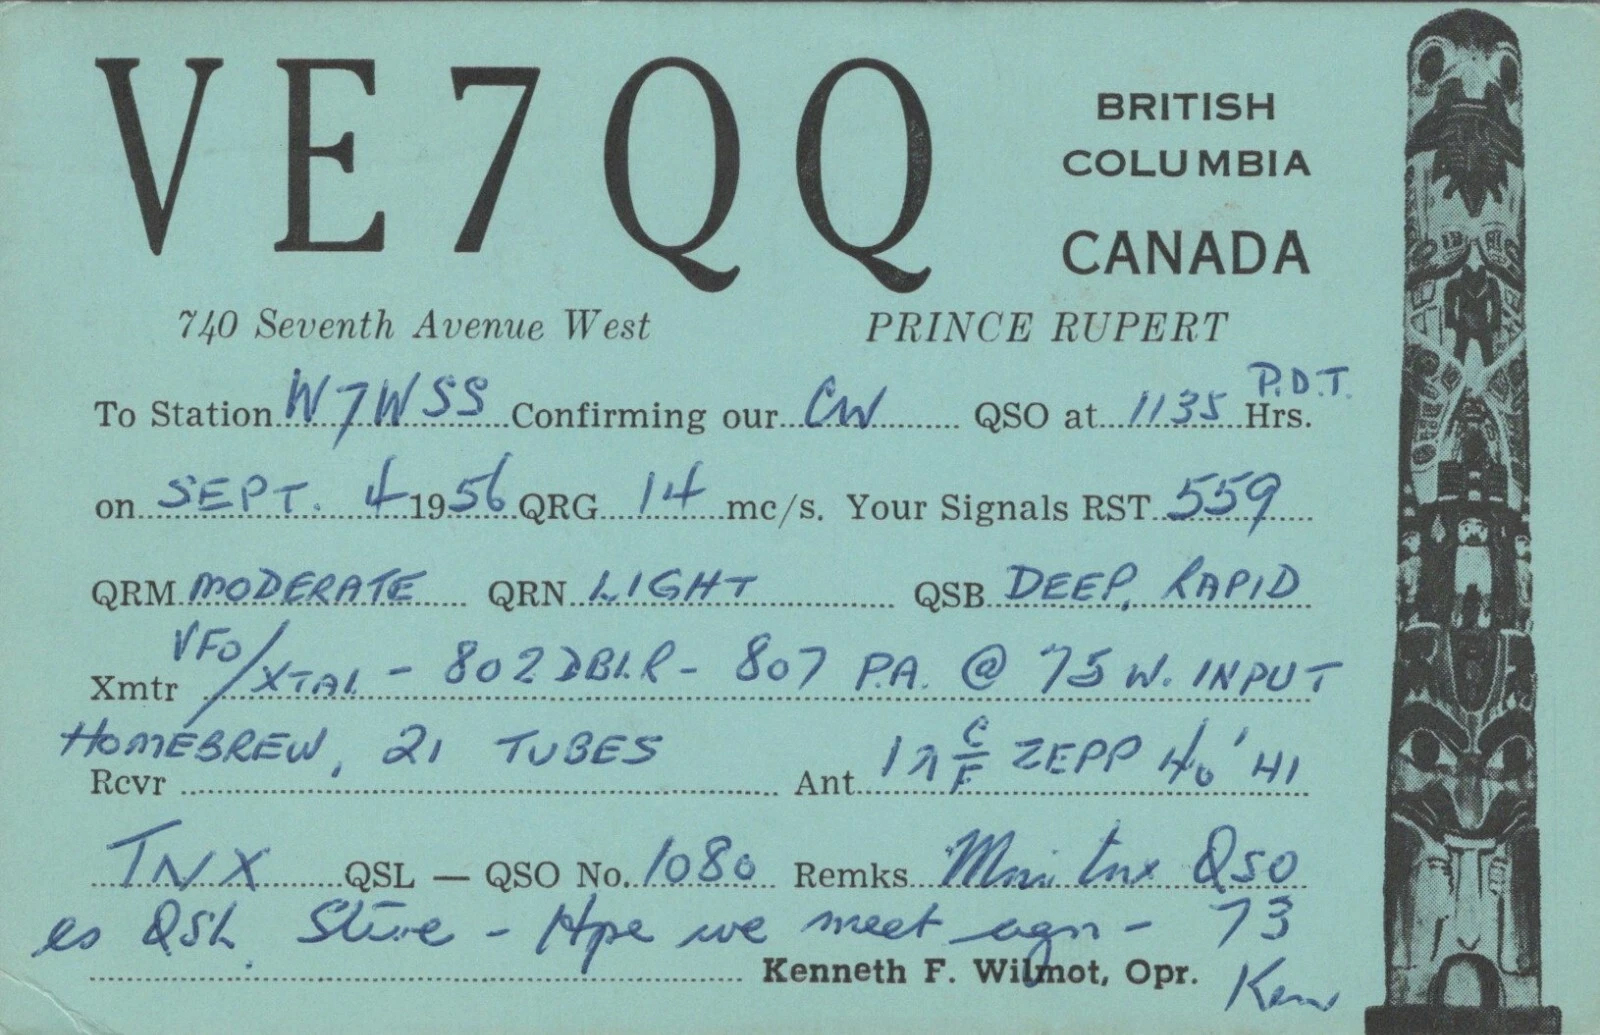 VE7QQ
BRITISH
COLUMBIA
CANADA
740 Seventh Avenue West PRINCE RUPERT
To Station W7WSS Confirming our CW QSO at 1135 Hrs. P.D.T.
on SEPT. 4 1956 QRG 14 mc/s. Your Signals RST 559
QRM MODERATE QRN LIGHT QSB DEEP, RAPID
Xmtr VFO/XTAL - 802 DBLR - 807 P.A. @ 75 W. INPUT
Rcvr HOMEBREW, 21 TUBES Ant 1 λ C/F ZEPP 40' HI
TNX QSL — QSO No. 1080 Remks Mni tnx QSO
es QSL Steve - Hpe we meet agn - 73
Kenneth F. Wilmot, Opr. Ken